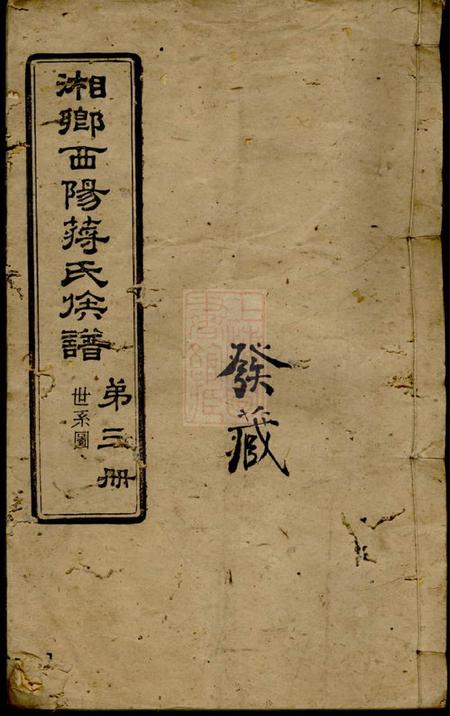 湘鄉西陽蔣氏族譜
第三冊
世系圖
發藏